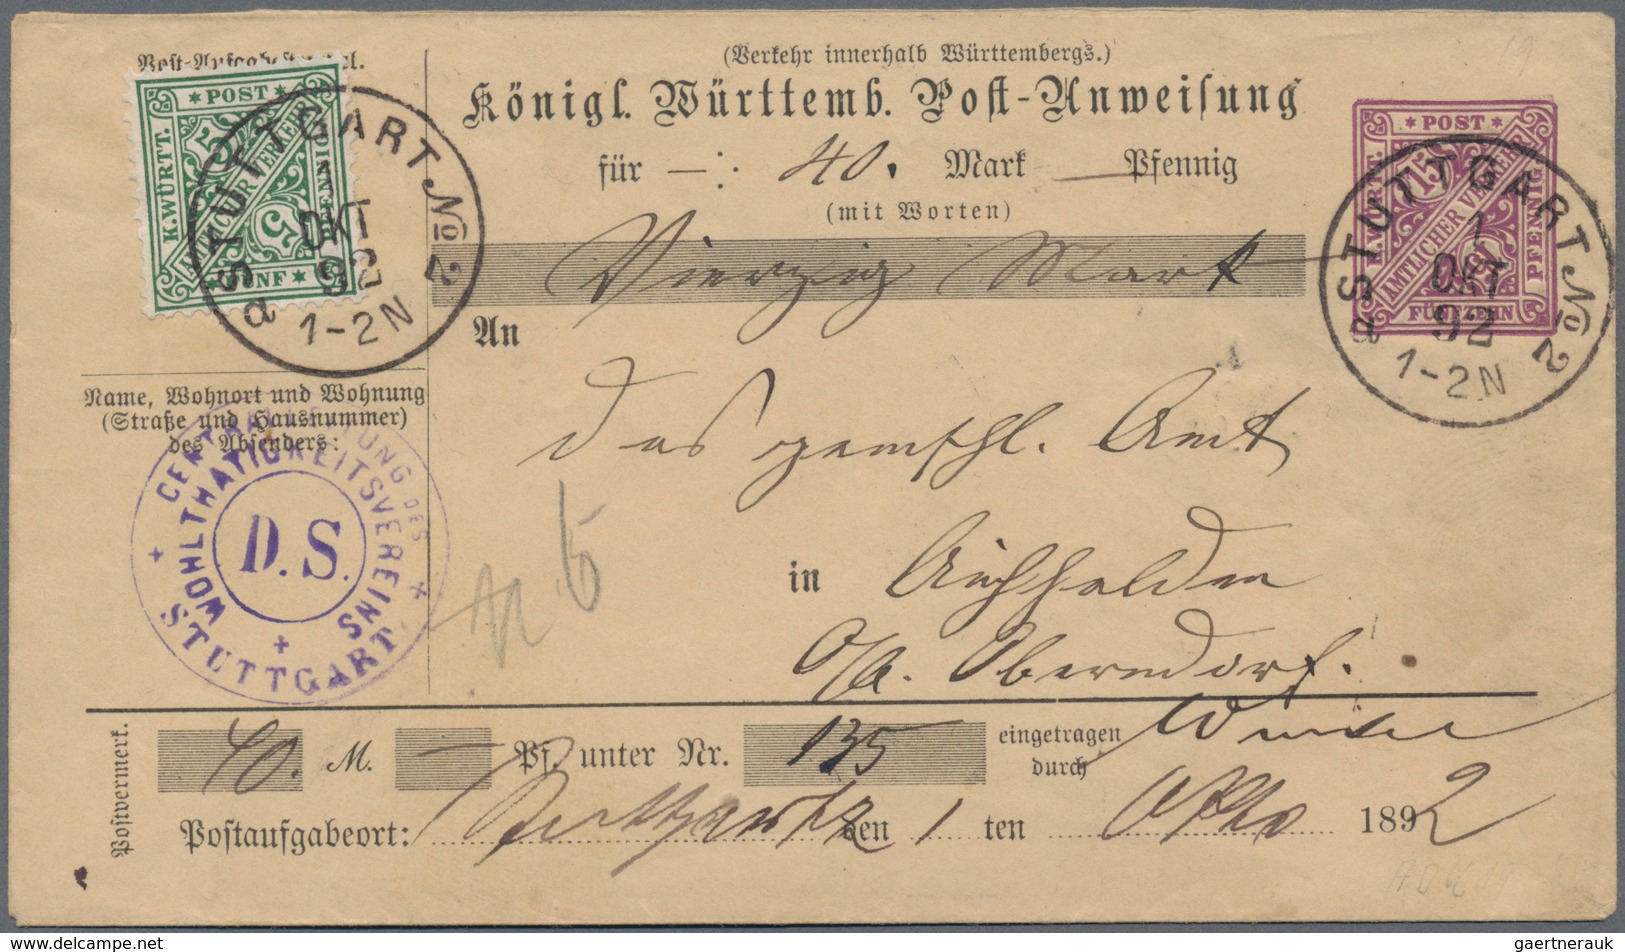 (Verkehr innerhalb Württembergs.)
Königl. Württemb. Post-Anweisung
für —: 40. Mark — Pfennig
(mit Worten)
Vierzig Mark
An
das gemschl. Amt
in Aichhalden
O/A. Oberndorf.
POST
K. WÜRTT.
AMTLICHER VERKEHR
5
FÜNF
STUTTGART No 2
a
1
OKT
92
1-2N
POST
K. WÜRTT.
15
AMTLICHER VERKEHR
PFENNIG
FÜNFZEHN
STUTTGART No 2
a
1
OKT
92
1-2N
Name, Wohnort und Wohnung
(Straße und Hausnummer)
des Absenders:
CENTRALLEITUNG DES
WOHLTHÄTIGKEITSVEREINS
D. S.
STUTTGART.
Postvermerk.
40. M. — Pf. unter Nr. 135 eingetragen
durch
Postaufgabeort: Stuttgart den 1 ten Okto 1892
delcampe.net
gaertnerauk